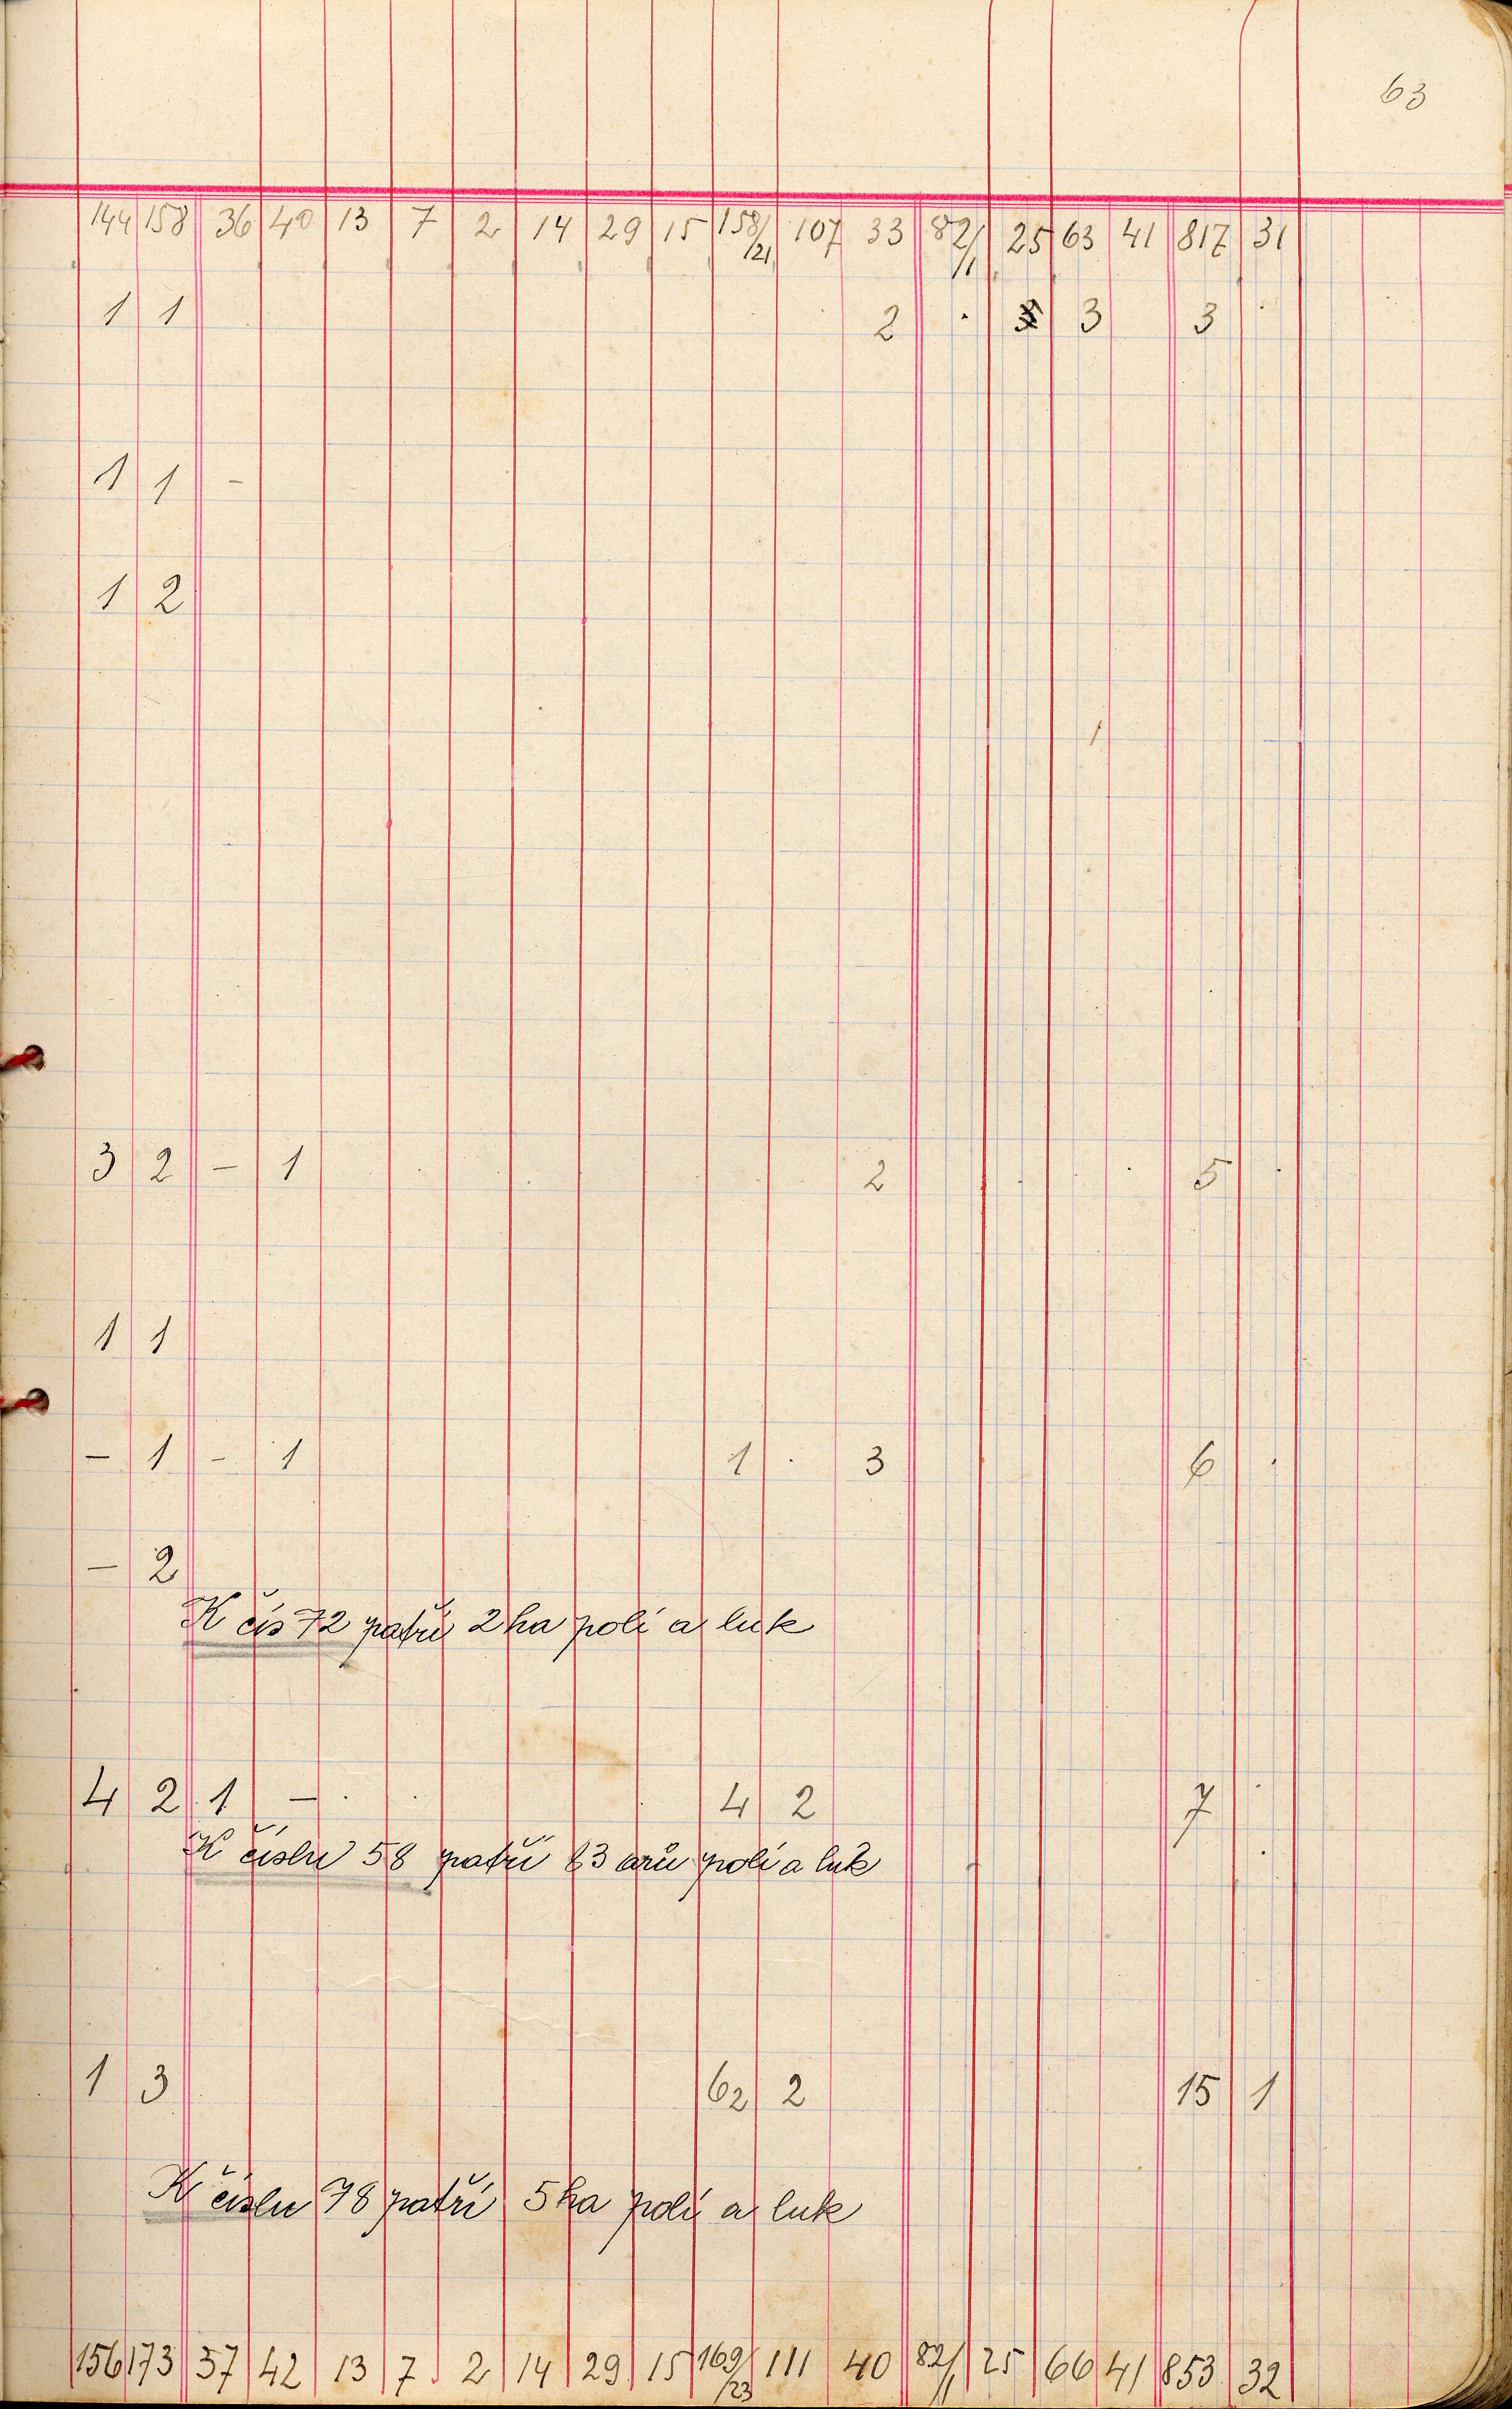 63
144 158 36 40 13 7 2 14 29 15 158/121 107 33 82/1 25 63 41 817 31
1 1 2 · 3 3 ·
1 1 -
1 2
3 2 - 1 2 5 ·
1 1
- 1 - 1 1 · 3 6 ·
- 2
K čís 72 patří 2 ha polí a luk
4 2 1 - 4 2 7 ·
K číslu 58 patří 83 arů polí a luk
1 3 62 2 15 1
K číslu 78 patří 5 ha polí a luk
156 173 37 42 13 7 2 14 29 15 169/23 111 40 82/1 25 66 41 853 32